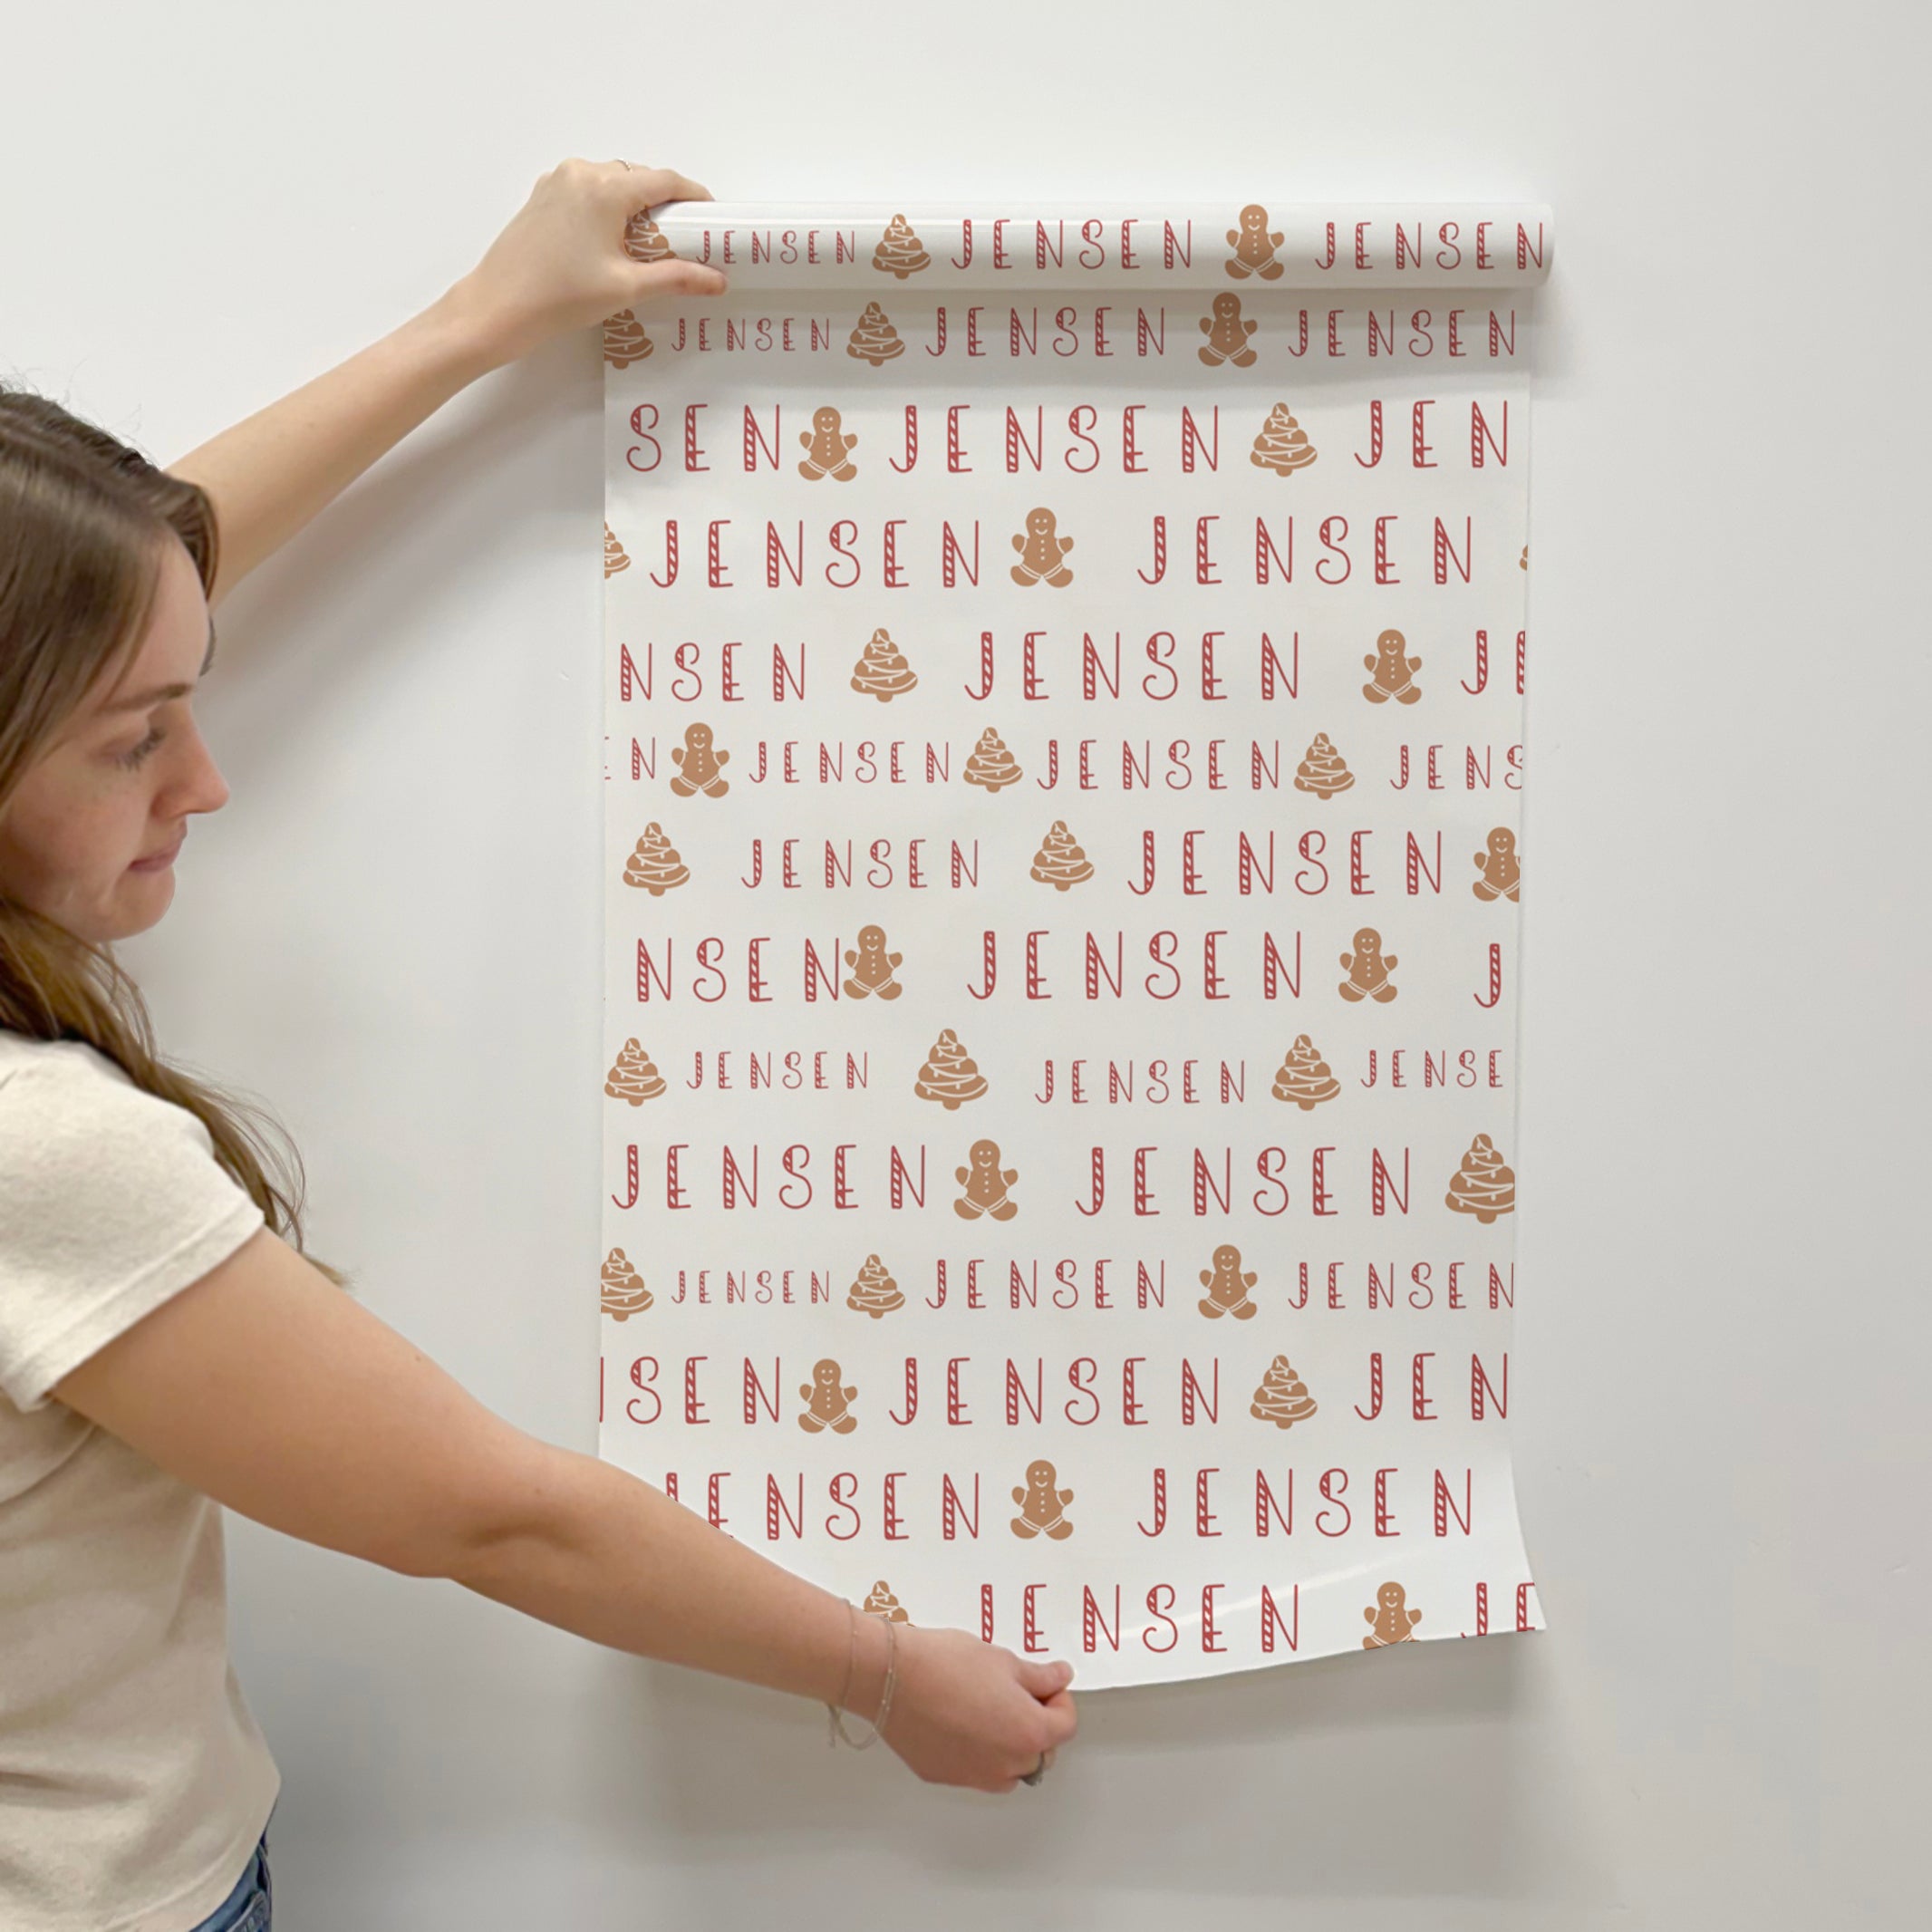 JENSEN JENSEN JENSEN
JENSEN JENSEN JENSEN
SEN JENSEN JEN
JENSEN JENSEN
NSEN JENSEN JE
EN JENSEN JENSEN JENS
JENSEN JENSEN
NSEN JENSEN J
JENSEN JENSEN JENSE
JENSEN JENSEN
JENSEN JENSEN JENSEN
NSEN JENSEN JEN
JENSEN JENSEN
JENSEN JE